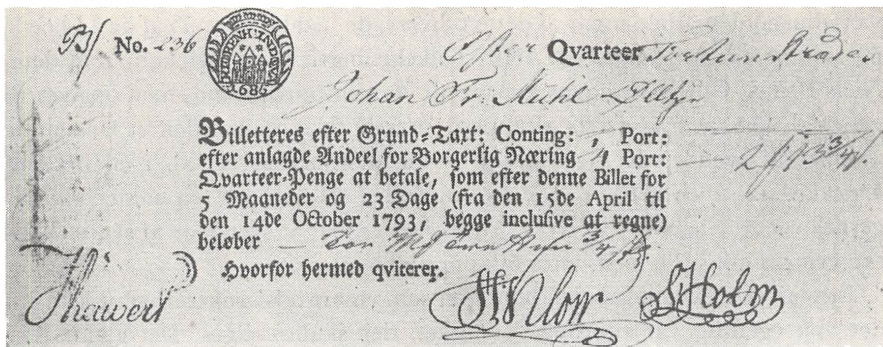 No. 236 Øster Qvarteer
1686
Johan Fr. Mühl
Billetteres efter Grund-Taxt: Conting: , Port:
efter anlagde Andeel for Borgerlig Næring 1/4 Port: — 2 ß 13 3/4
Qvarteer-Penge at betale, som efter denne Billet for
5 Maaneder og 23 Dage (fra den 15de April til
den 14de October 1793, begge inclusive at regne)
beløber —
Hvorfor hermed qviterer.
Thawert Holm